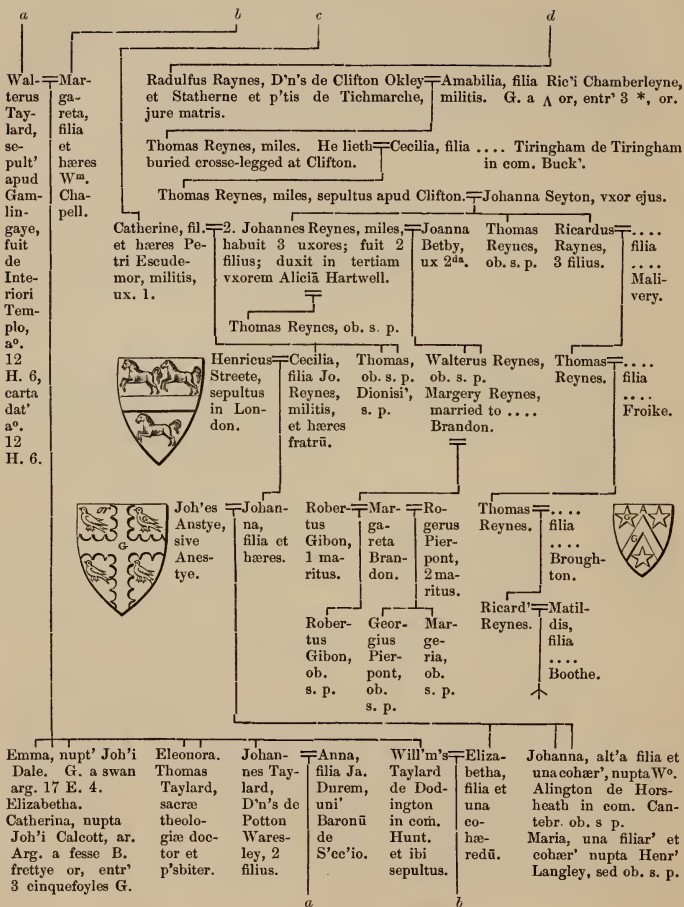 a b c d
Wal-
terus
Tay-
lard,
se-
pult'
apud
Gam-
lin-
gaye,
fuit
de
Inte-
riori
Tem-
plo,
aº.
12
H. 6,
carta
dat'
aº.
12
H. 6.
Mar-
ga-
reta,
filia
et
hæres
Wm.
Cha-
pell.
Radulfus Raynes, D'n's de Clifton Okley
et Statherne et p'tis de Tichmarche,
jure matris.
Amabilia, filia Ric'i Chamberleyne,
militis. G. a Λ or, entr' 3 *, or.
Thomas Reynes, miles. He lieth
buried crosse-legged at Clifton.
Cecilia, filia .... Tiringham de Tiringham
in com. Buck'.
Thomas Reynes, miles, sepultus apud Clifton.
Johanna Seyton, vxor ejus.
Catherine, fil.
et hæres Pe-
tri Escude-
mor, militis,
ux. 1.
2. Johannes Reynes, miles,
habuit 3 uxores; fuit 2
filius; duxit in tertiam
vxorem Aliciā Hartwell.
Joanna
Betby,
ux 2da.
Thomas
Reynes,
ob. s. p.
Ricardus
Raynes,
3 filius.
....
filia
....
Mali-
very.
Thomas Reynes, ob. s. p.
Henricus
Streete,
sepultus
in Lon-
don.
Cecilia,
filia Jo.
Reynes,
militis,
et hæres
fratrū.
Thomas,
ob. s. p.
Dionisi',
s. p.
Walterus Reynes,
ob. s. p.
Margery Reynes,
married to ....
Brandon.
Thomas
Reynes.
....
filia
....
Froike.
G
Joh'es
Anstye,
sive
Anes-
tye.
Johan-
na,
filia et
hæres.
Rober-
tus
Gibon,
1 ma-
ritus.
Mar-
ga-
reta
Bran-
don.
Ro-
gerus
Pier-
pont,
2 ma-
ritus.
Thomas
Reynes.
....
filia
....
Brough-
ton.
A
G
Rober-
tus
Gibon,
ob.
s. p.
Geor-
gius
Pier-
pont,
ob.
s. p.
Mar-
ge-
ria,
ob.
s. p.
Ricard'
Reynes.
Matil-
dis,
filia
....
Boothe.
Emma, nupt' Joh'i
Dale. G. a swan
arg. 17 E. 4.
Elizabetha.
Catherina, nupta
Joh'i Calcott, ar.
Arg. a fesse B.
frettye or, entr'
3 cinquefoyles G.
Eleonora.
Thomas
Taylard,
sacræ
theolo-
giæ doc-
tor et
p'sbiter.
Johan-
nes Tay-
lard,
D'n's de
Potton
Wares-
ley, 2
filius.
Anna,
filia Ja.
Durem,
uni'
Baronū
de
S'cc'io.
Will'm's
Taylard
de Dod-
ington
in com̄.
Hunt.
et ibi
sepultus.
Eliza-
betha,
filia et
una
co-
hæ-
redū.
Johanna, alt'a filia et
una cohær', nupta Wº.
Alington de Hors-
heath in com. Can-
tebr. ob. s. p.
Maria, una filiar' et
cohær' nupta Henr'
Langley, sed ob. s. p.
a b